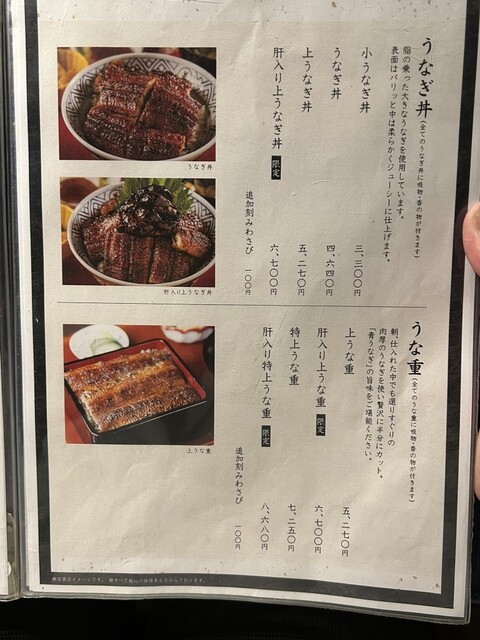 うなぎ丼(全てのうなぎ丼に吸物・香の物が付きます)
脂の乗った大きなうなぎを使用しています。
表面はパリッと中は柔らかくジューシーに仕上げます。
小うなぎ丼 三、三〇〇円
うなぎ丼 四、六四〇円
上うなぎ丼 五、二七〇円
肝入り上うなぎ丼 限定 六、七〇〇円
追加刻みわさび 一〇〇円
うなぎ丼
肝入り上うなぎ丼
うな重(全てのうな重に吸物・香の物が付きます)
朝、仕入れた中でも選りすぐりの
肉厚のうなぎを使い贅沢に半分にカット。
「青うなぎ」の旨味をご堪能ください。
上うな重 五、二七〇円
肝入り上うな重 限定 六、七〇〇円
特上うな重 七、二五〇円
肝入り特上うな重 限定 八、六八〇円
追加刻みわさび 一〇〇円
上うな重